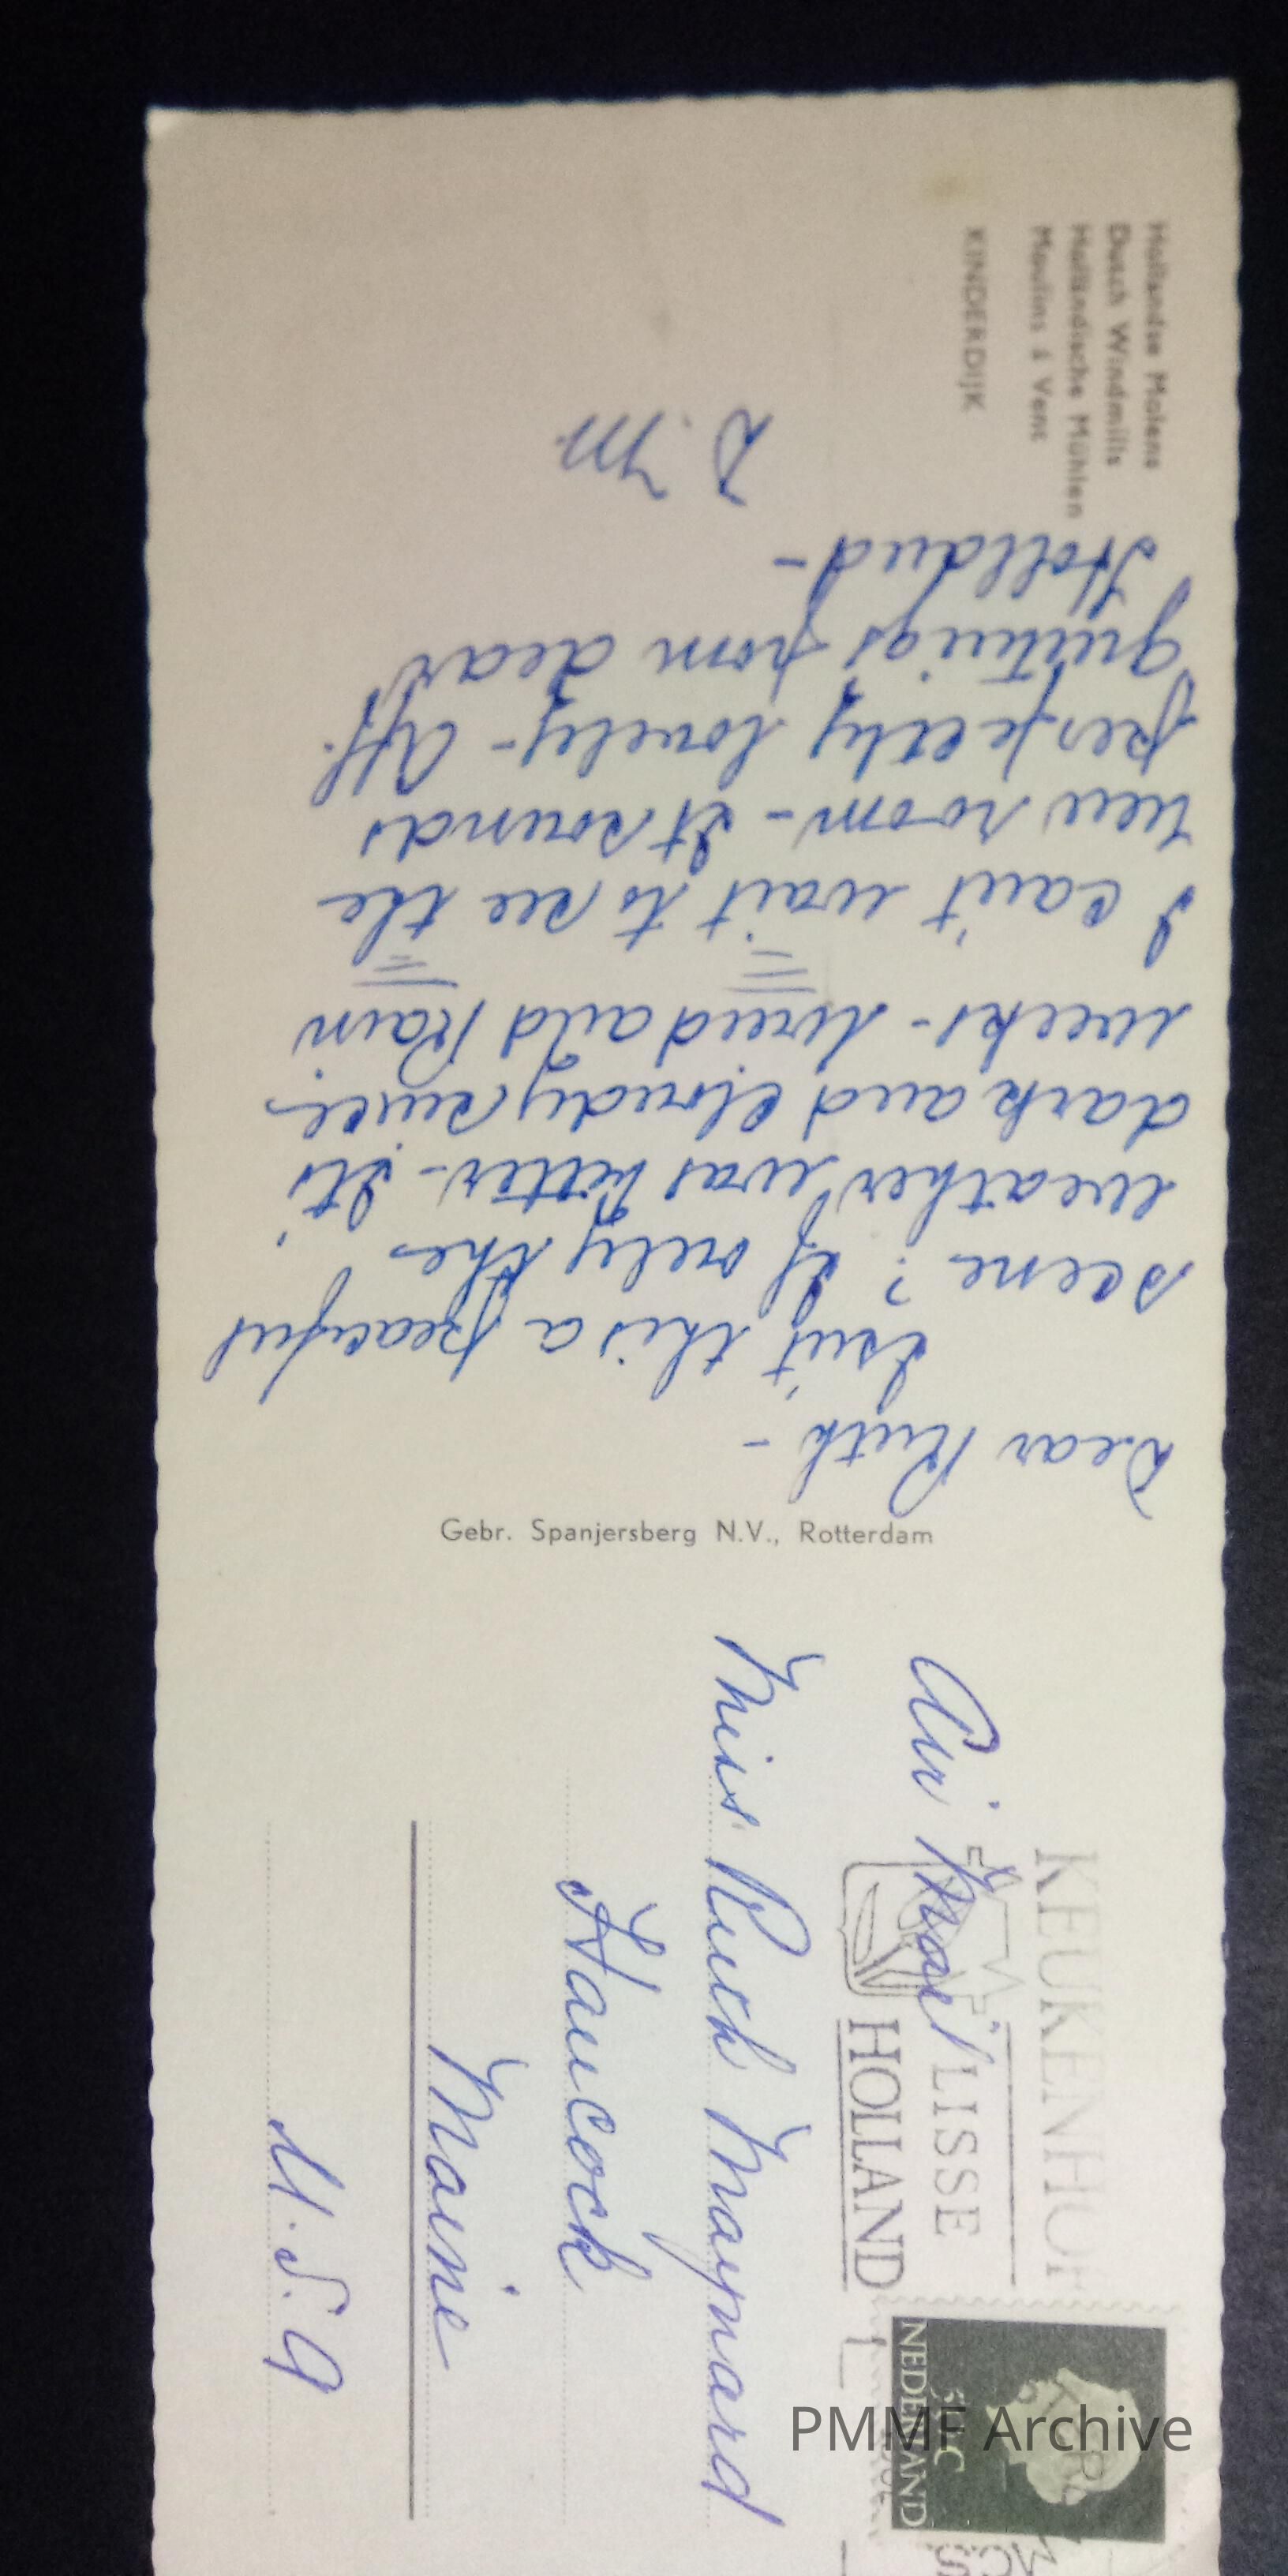 Hollandse Molens
Dutch Windmills
Holländische Mühlen
Moulins à Vent
KINDERDIJK
Dear Ruth -
Isn't this a peaceful
scene? If only the
weather was better - It's
dark and cloudy since
weeks - wind and Rain
I can't wait to see the
new room - It sounds
perfectly lovely - Aff.
greetings from dear
Holland -
D.M.
Gebr. Spanjersberg N.V., Rotterdam
KEUKENHOF
LISSE
HOLLAND
NEDERLAND
Air Mail
Miss Ruth Maynard
Hancock
Maine
U.S.A
PMMF Archive